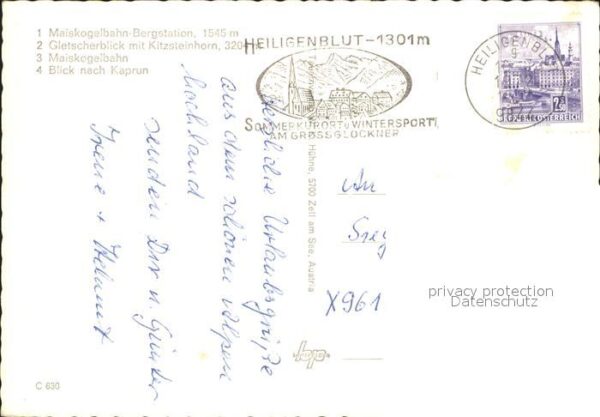 1 Maiskogelbahn-Bergstation, 1545 m
2 Gletscherblick mit Kitzsteinhorn, 320
3 Maiskogelbahn
4 Blick nach Kaprun
HEILIGENBLUT – 1301 m
SOMMERKURORT U WINTERSPORT
AM GROSSGLOCKNER
HEILIGENBL
2
REPUBLIK ÖSTERREICH
Hühne, 5700 Zell am See, Austria
Herzliche Urlaubsgrüße
aus dem schönen Alpen
hochland
senden Dir u. Günter
Irene + Helmut
An
X961
privacy protection
Datenschutz
C 630